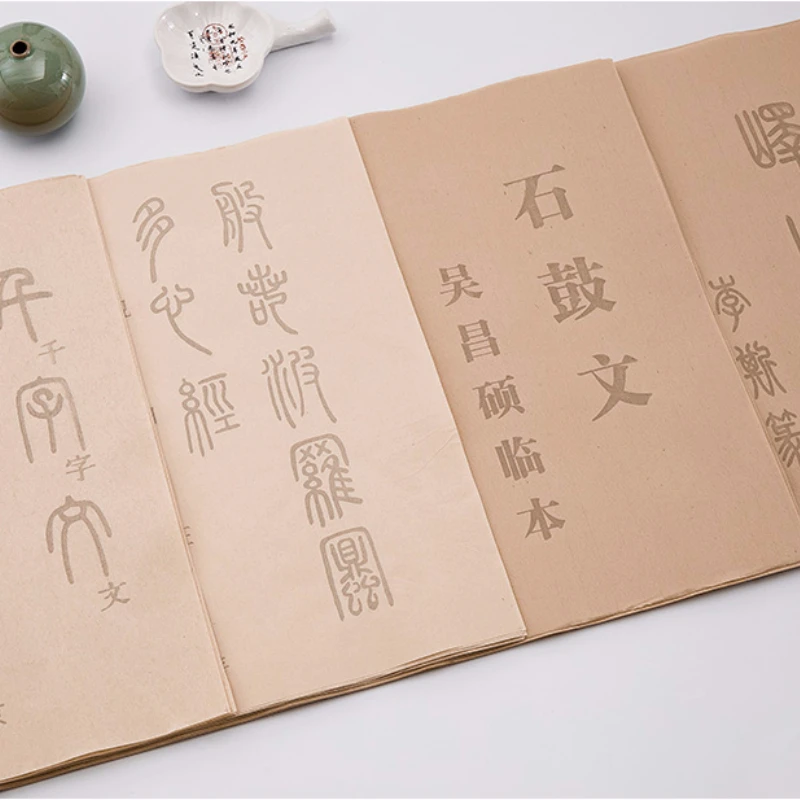 千字文
千字文
般若波羅蜜
多心經
石鼓文
吴昌硕临本
嶧
李斯篆